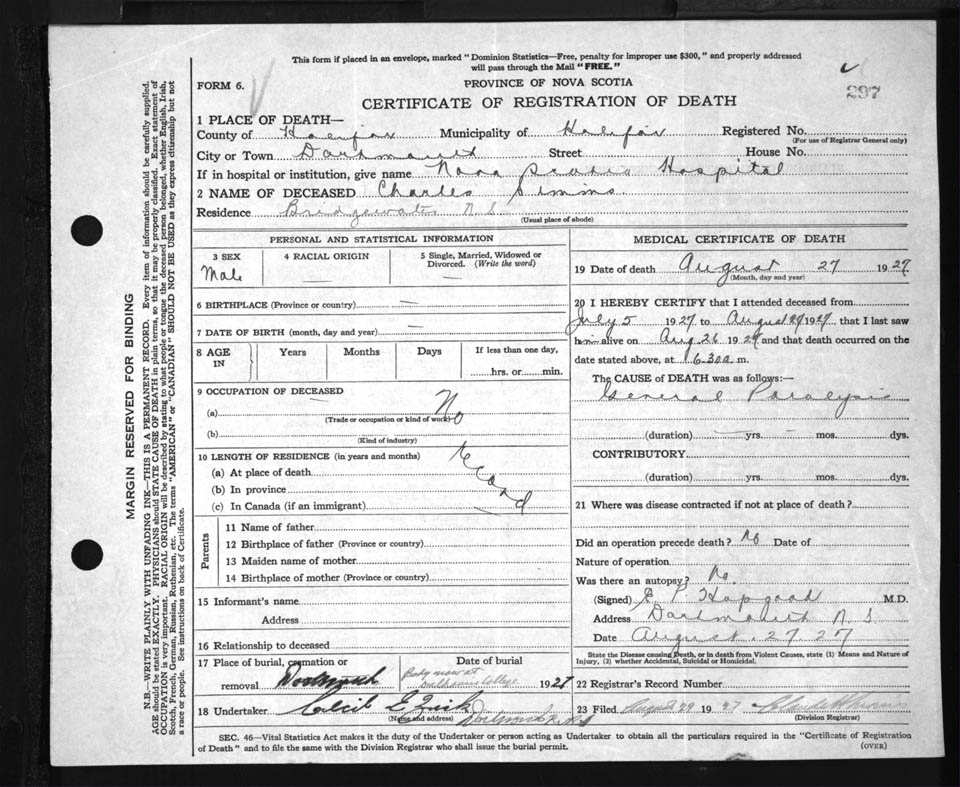 This form if placed in an envelope, marked "Dominion Statistics—Free, penalty for improper use $300," and properly addressed
will pass through the Mail "FREE."
FORM 6.
PROVINCE OF NOVA SCOTIA
297
CERTIFICATE OF REGISTRATION OF DEATH
1 PLACE OF DEATH—
County of Halifax Municipality of Halifax Registered No.
(For use of Registrar General only)
City or Town Dartmouth Street House No.
If in hospital or institution, give name Nova Scotia Hospital
2 NAME OF DECEASED Charles Simms
Residence Bridgewater N.S.
(Usual place of abode)
PERSONAL AND STATISTICAL INFORMATION
3 SEX
Male
4 RACIAL ORIGIN
5 Single, Married, Widowed or
Divorced. (Write the word)
—
6 BIRTHPLACE (Province or country) —
7 DATE OF BIRTH (month, day and year) —
8 AGE
IN
Years Months Days
If less than one day,
hrs. or min.
9 OCCUPATION OF DECEASED
(a) —
(Trade or occupation or kind of work)
(b)
(Kind of industry)
No
Record
10 LENGTH OF RESIDENCE (in years and months)
(a) At place of death
(b) In province
(c) In Canada (if an immigrant)
Parents
11 Name of father
12 Birthplace of father (Province or country)
13 Maiden name of mother
14 Birthplace of mother (Province or country)
15 Informant's name
Address
16 Relationship to deceased
17 Place of burial, cremation or
removal Dartmouth
Date of burial
Body now at
Dalhousie College
1927
18 Undertaker Cecil E Zink Dartmouth N.S.
(Name and address)
MEDICAL CERTIFICATE OF DEATH
19 Date of death August 27 1927
(Month, day and year)
20 I HEREBY CERTIFY that I attended deceased from
July 5 1927 to August 27 1927 that I last saw
him alive on Aug 26 1927 and that death occurred on the
date stated above, at 6.30 a. m.
The CAUSE of DEATH was as follows:—
General Paralysis
(duration) — yrs. — mos. dys.
CONTRIBUTORY
(duration) yrs. mos. dys.
21 Where was disease contracted if not at place of death?
Did an operation precede death? No Date of
Nature of operation
Was there an autopsy? No.
(Signed) E P Hopgood M.D.
Address Dartmouth N.S.
Date August 27. 27
State the Disease causing Death, or in death from Violent Causes, state (1) Means and Nature of
Injury, (2) whether Accidental, Suicidal or Homicidal.
22 Registrar's Record Number
23 Filed August 29 19
(Division Registrar)
SEC. 46—Vital Statistics Act makes it the duty of the Undertaker or person acting as Undertaker to obtain all the particulars required in the "Certificate of Registration
of Death" and to file the same with the Division Registrar who shall issue the burial permit. (OVER)
MARGIN RESERVED FOR BINDING
N.B.—WRITE PLAINLY WITH UNFADING INK—THIS IS A PERMANENT RECORD. Every item of information should be carefully supplied.
AGE should be stated EXACTLY. PHYSICIANS should STATE CAUSE OF DEATH in plain terms, so that it may be properly classified. Exact statement of
OCCUPATION is very important. RACIAL ORIGIN will be described by stating to what people or tongue the deceased person belonged, whether English, Irish,
Scotch, French, German, Russian, Ruthenian, etc. The terms "AMERICAN" or "CANADIAN" SHOULD NOT BE USED as they express citizenship but not
a race or people. See instructions on back of Certificate.